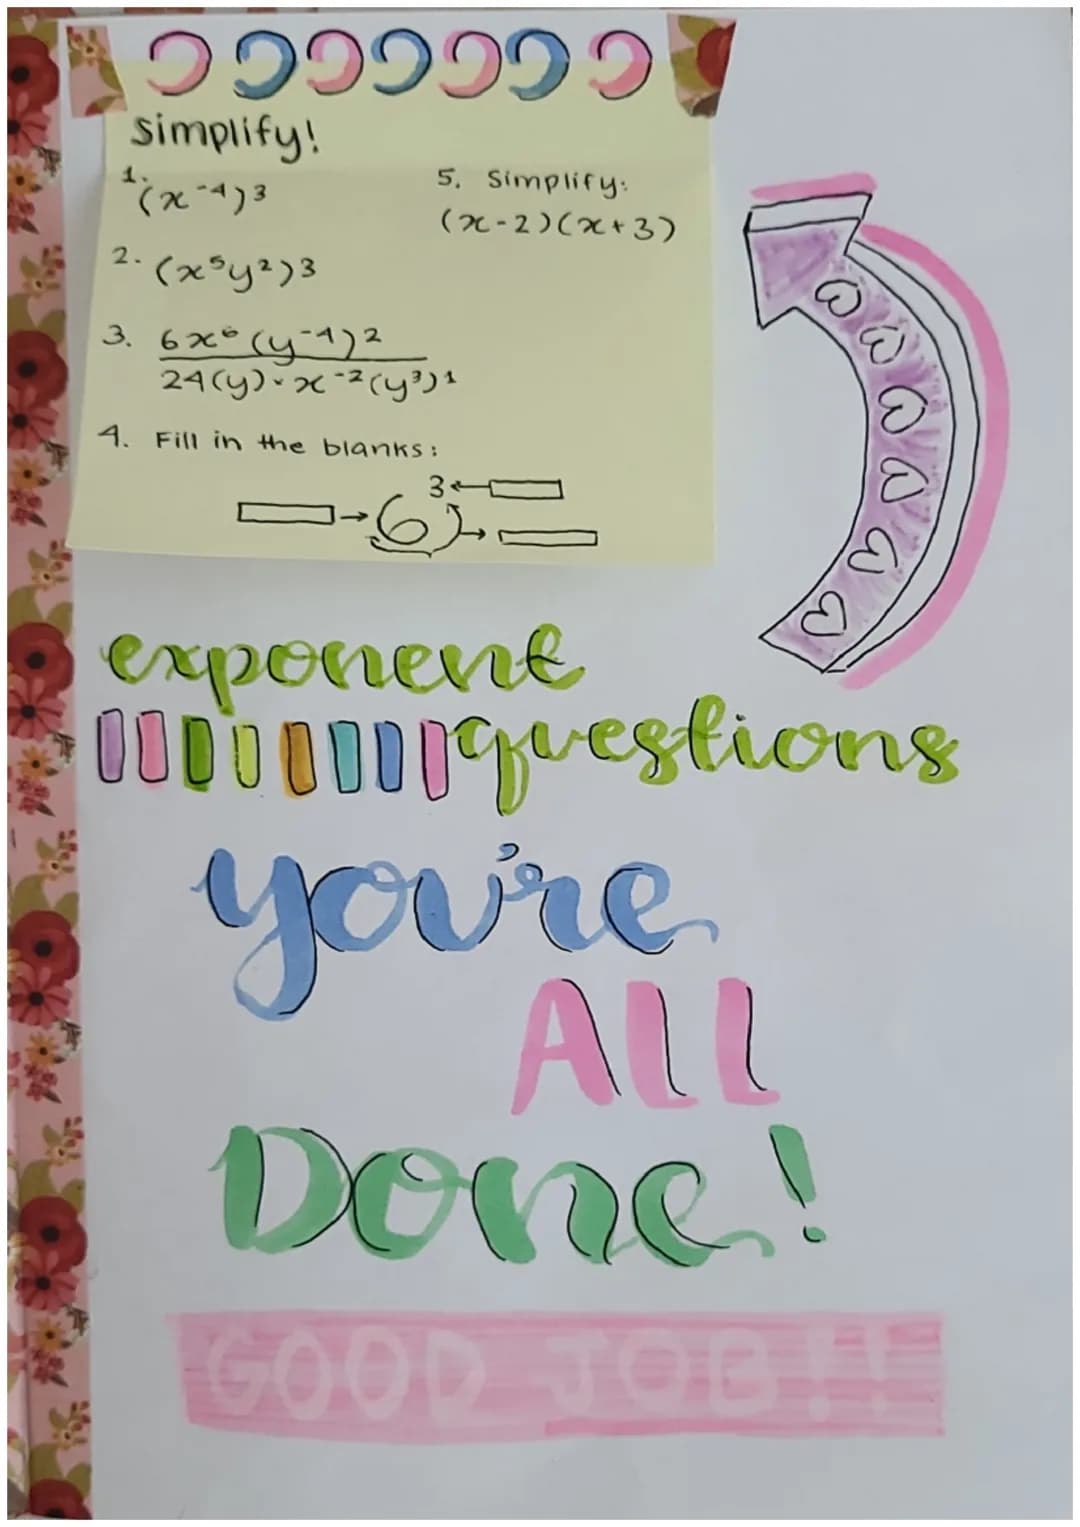 simplify!
1. (x⁻⁴)³
2. (x⁵y²)³
3. 6x⁶(y⁻⁴)²
24(y)·x⁻²(y³)¹
4. Fill in the blanks:
3
6
5. Simplify:
(x-2)(x+3)
exponent
questions
you're
ALL
Done!
GOOD JOB!!